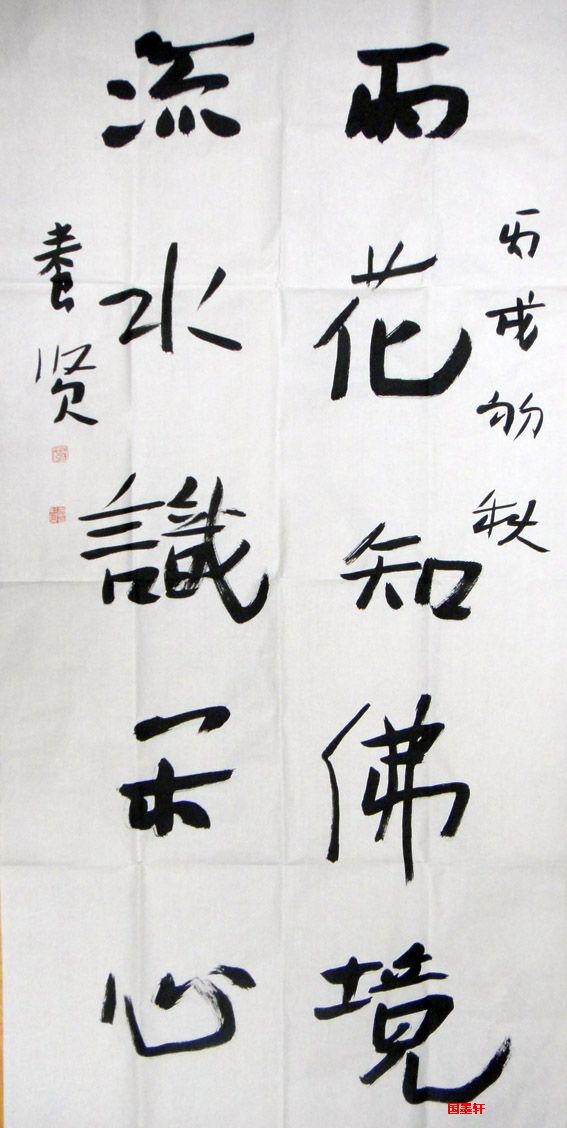 丙戌初秋
雨花知佛境
流水識心
贤
国墨轩